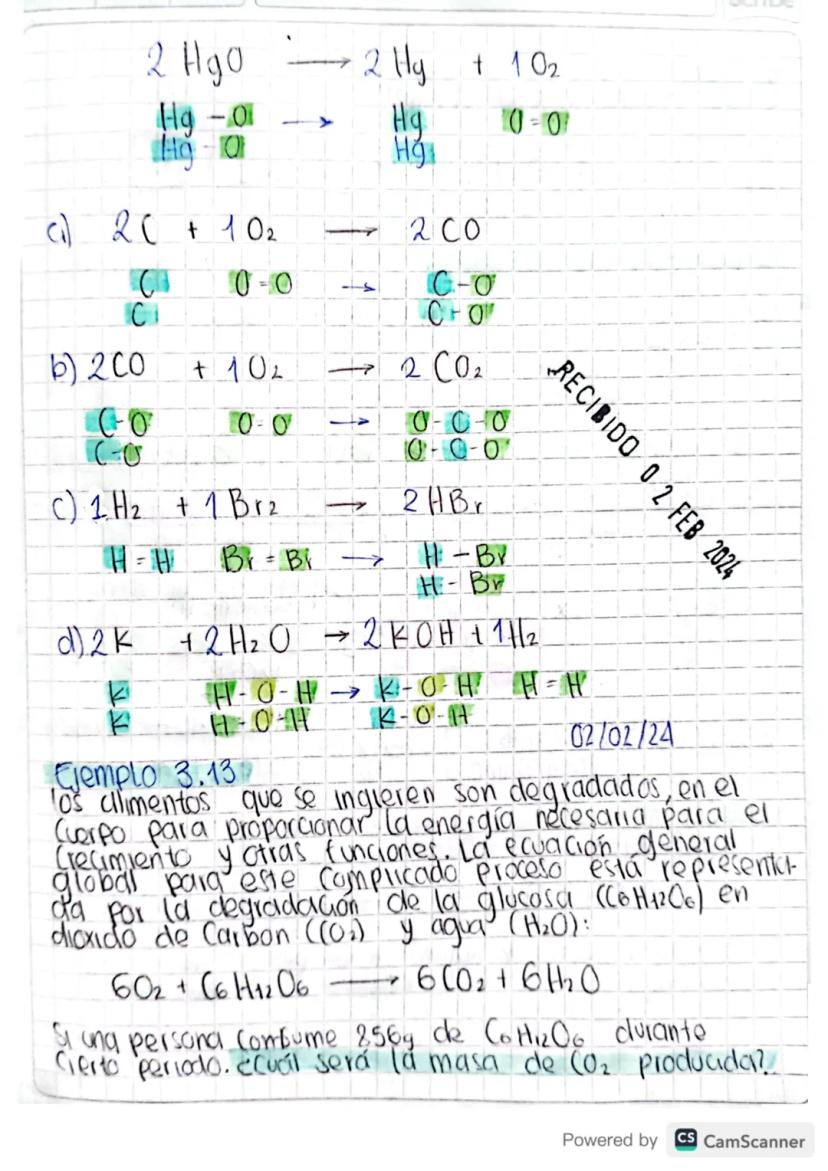 2 HgO ⟶ 2 Hg + 1 O₂
Hg - O → Hg O = O
Hg - O Hg
a) 2 C + 1 O₂ ⟶ 2 CO
C O = O → C - O
C C - O
b) 2CO + 1 O₂ ⟶ 2 CO₂
C - O O - O → O - C - O
C - O O - C - O
c) 1 H₂ + 1 Br₂ ⟶ 2 HBr
H = H Br = Br → H - Br
H - Br
d) 2 K + 2 H₂O → 2 KOH + 1 H₂
K H - O - H → K - O - H H = H
K H - O - H K - O - H
RECIBIDO 0 2 FEB 2024
02/02/24
Ejemplo 3.13
los alimentos que se ingieren son degradados, en el
Cuerpo para proporcionar la energía necesaria para el
Crecimiento y otras funciones. La ecuación general
global para este complicado proceso está representa-
da por la degradación de la glucosa (C6H12O6) en
dioxido de Carbon (CO₂) y agua (H₂O):
6O₂ + C6H12O6 ⟶ 6CO₂ + 6H₂O
Si una persona Consume 856g de C6H12O6 durante
Cierto periodo. ¿Cuál será la masa de CO₂ producida?
Powered by CS CamScanner